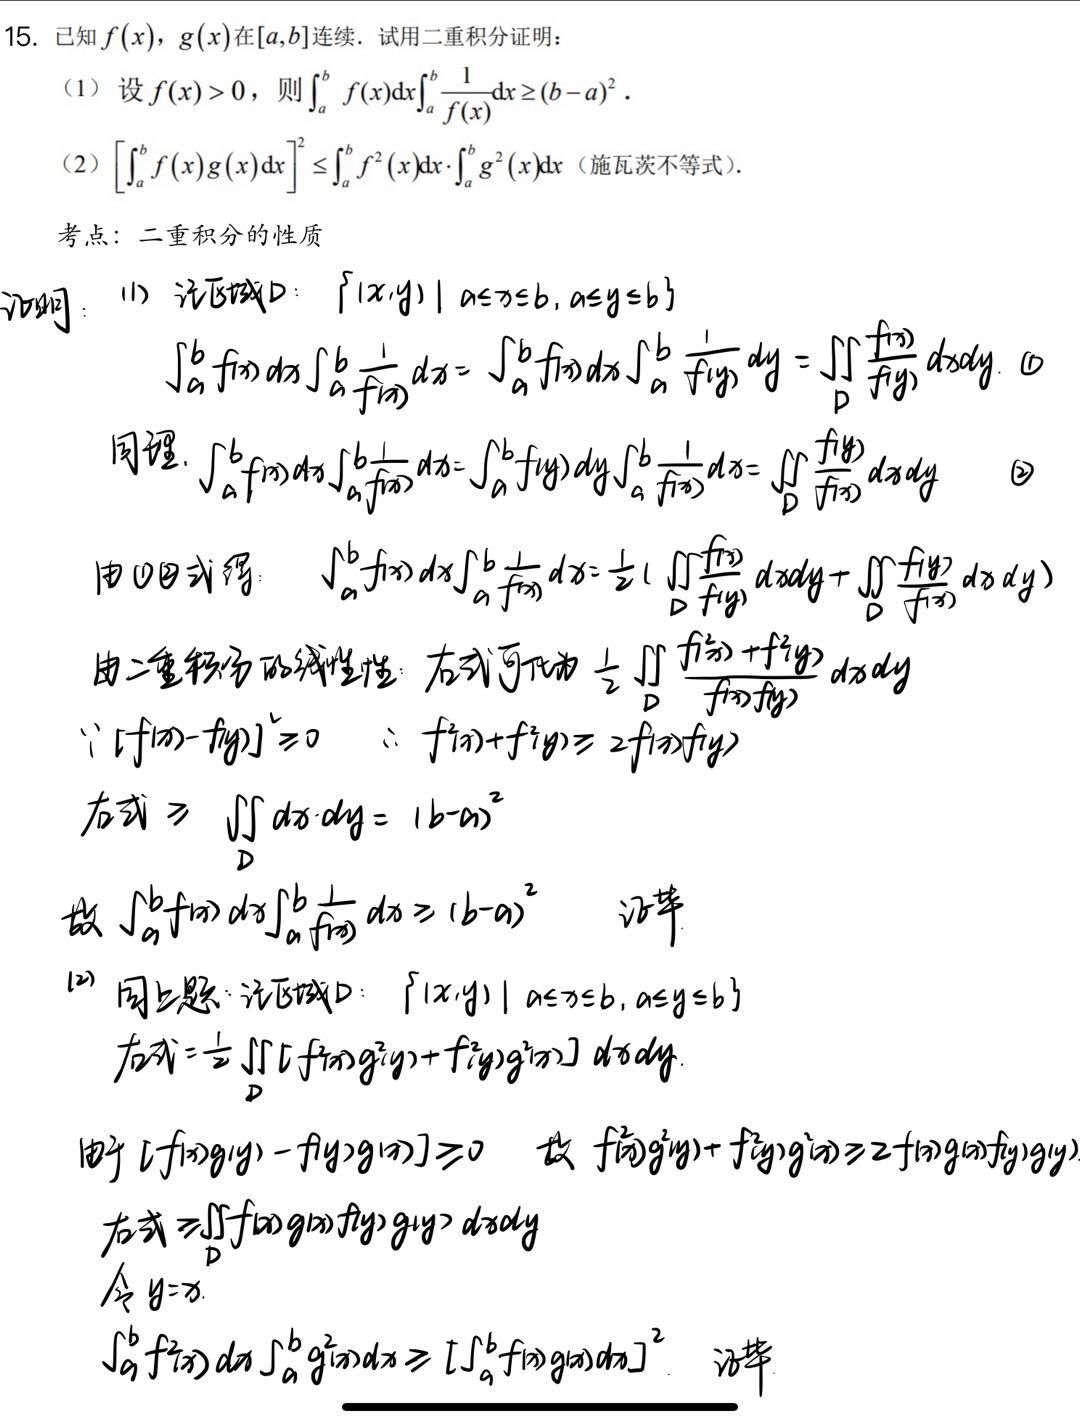 15. 已知 f(x)，g(x)在[a,b]连续．试用二重积分证明：
（1）设 f(x)>0，则∫_a^b f(x)dx∫_a^b 1/f(x) dx≥(b−a)²．
（2）[∫_a^b f(x)g(x)dx]²≤∫_a^b f²(x)dx·∫_a^b g²(x)dx（施瓦茨不等式）.
考点：二重积分的性质
证明：(1) 记区域D：{(x,y)| a≤x≤b, a≤y≤b}
∫_a^b f(x)dx∫_a^b 1/f(x) dx=∫_a^b f(x)dx∫_a^b 1/f(y) dy=∬_D f(x)/f(y) dxdy. ①
同理，∫_a^b f(x)dx∫_a^b 1/f(x) dx=∫_a^b f(y)dy∫_a^b 1/f(x) dx=∬_D f(y)/f(x) dxdy ②
由①②式得：∫_a^b f(x)dx∫_a^b 1/f(x) dx=1/2(∬_D f(x)/f(y) dxdy+∬_D f(y)/f(x) dxdy)
由二重积分的线性性：右式可化为 1/2∬_D (f²(x)+f²(y))/(f(x)f(y)) dxdy
∵[f(x)−f(y)]²≥0 ∴ f²(x)+f²(y)≥2f(x)f(y)
右式≥∬_D dx·dy=(b−a)²
故∫_a^b f(x)dx∫_a^b 1/f(x) dx≥(b−a)² 证毕.
(2) 同上题：记区域D：{(x,y)| a≤x≤b, a≤y≤b}
右式=1/2∬_D[f²(x)g²(y)+f²(y)g²(x)]dxdy.
由于[f(x)g(y)−f(y)g(x)]≥0 故 f²(x)g²(y)+f²(y)g²(x)≥2f(x)g(x)f(y)g(y).
右式≥∬_D f(x)g(x)f(y)g(y)dxdy
令y=x.
∫_a^b f²(x)dx∫_a^b g²(x)dx≥[∫_a^b f(x)g(x)dx]². 证毕.